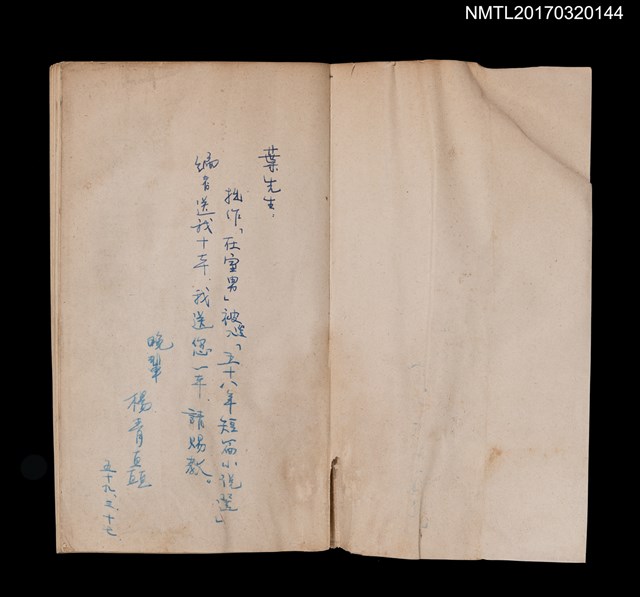 NMTL20170320144
葉先生,
拙作「在室男」被選「五十八年短篇小說選」
編者送我十本,我送您一本,請賜教。
晚輩
楊青矗
五十九、三、十七